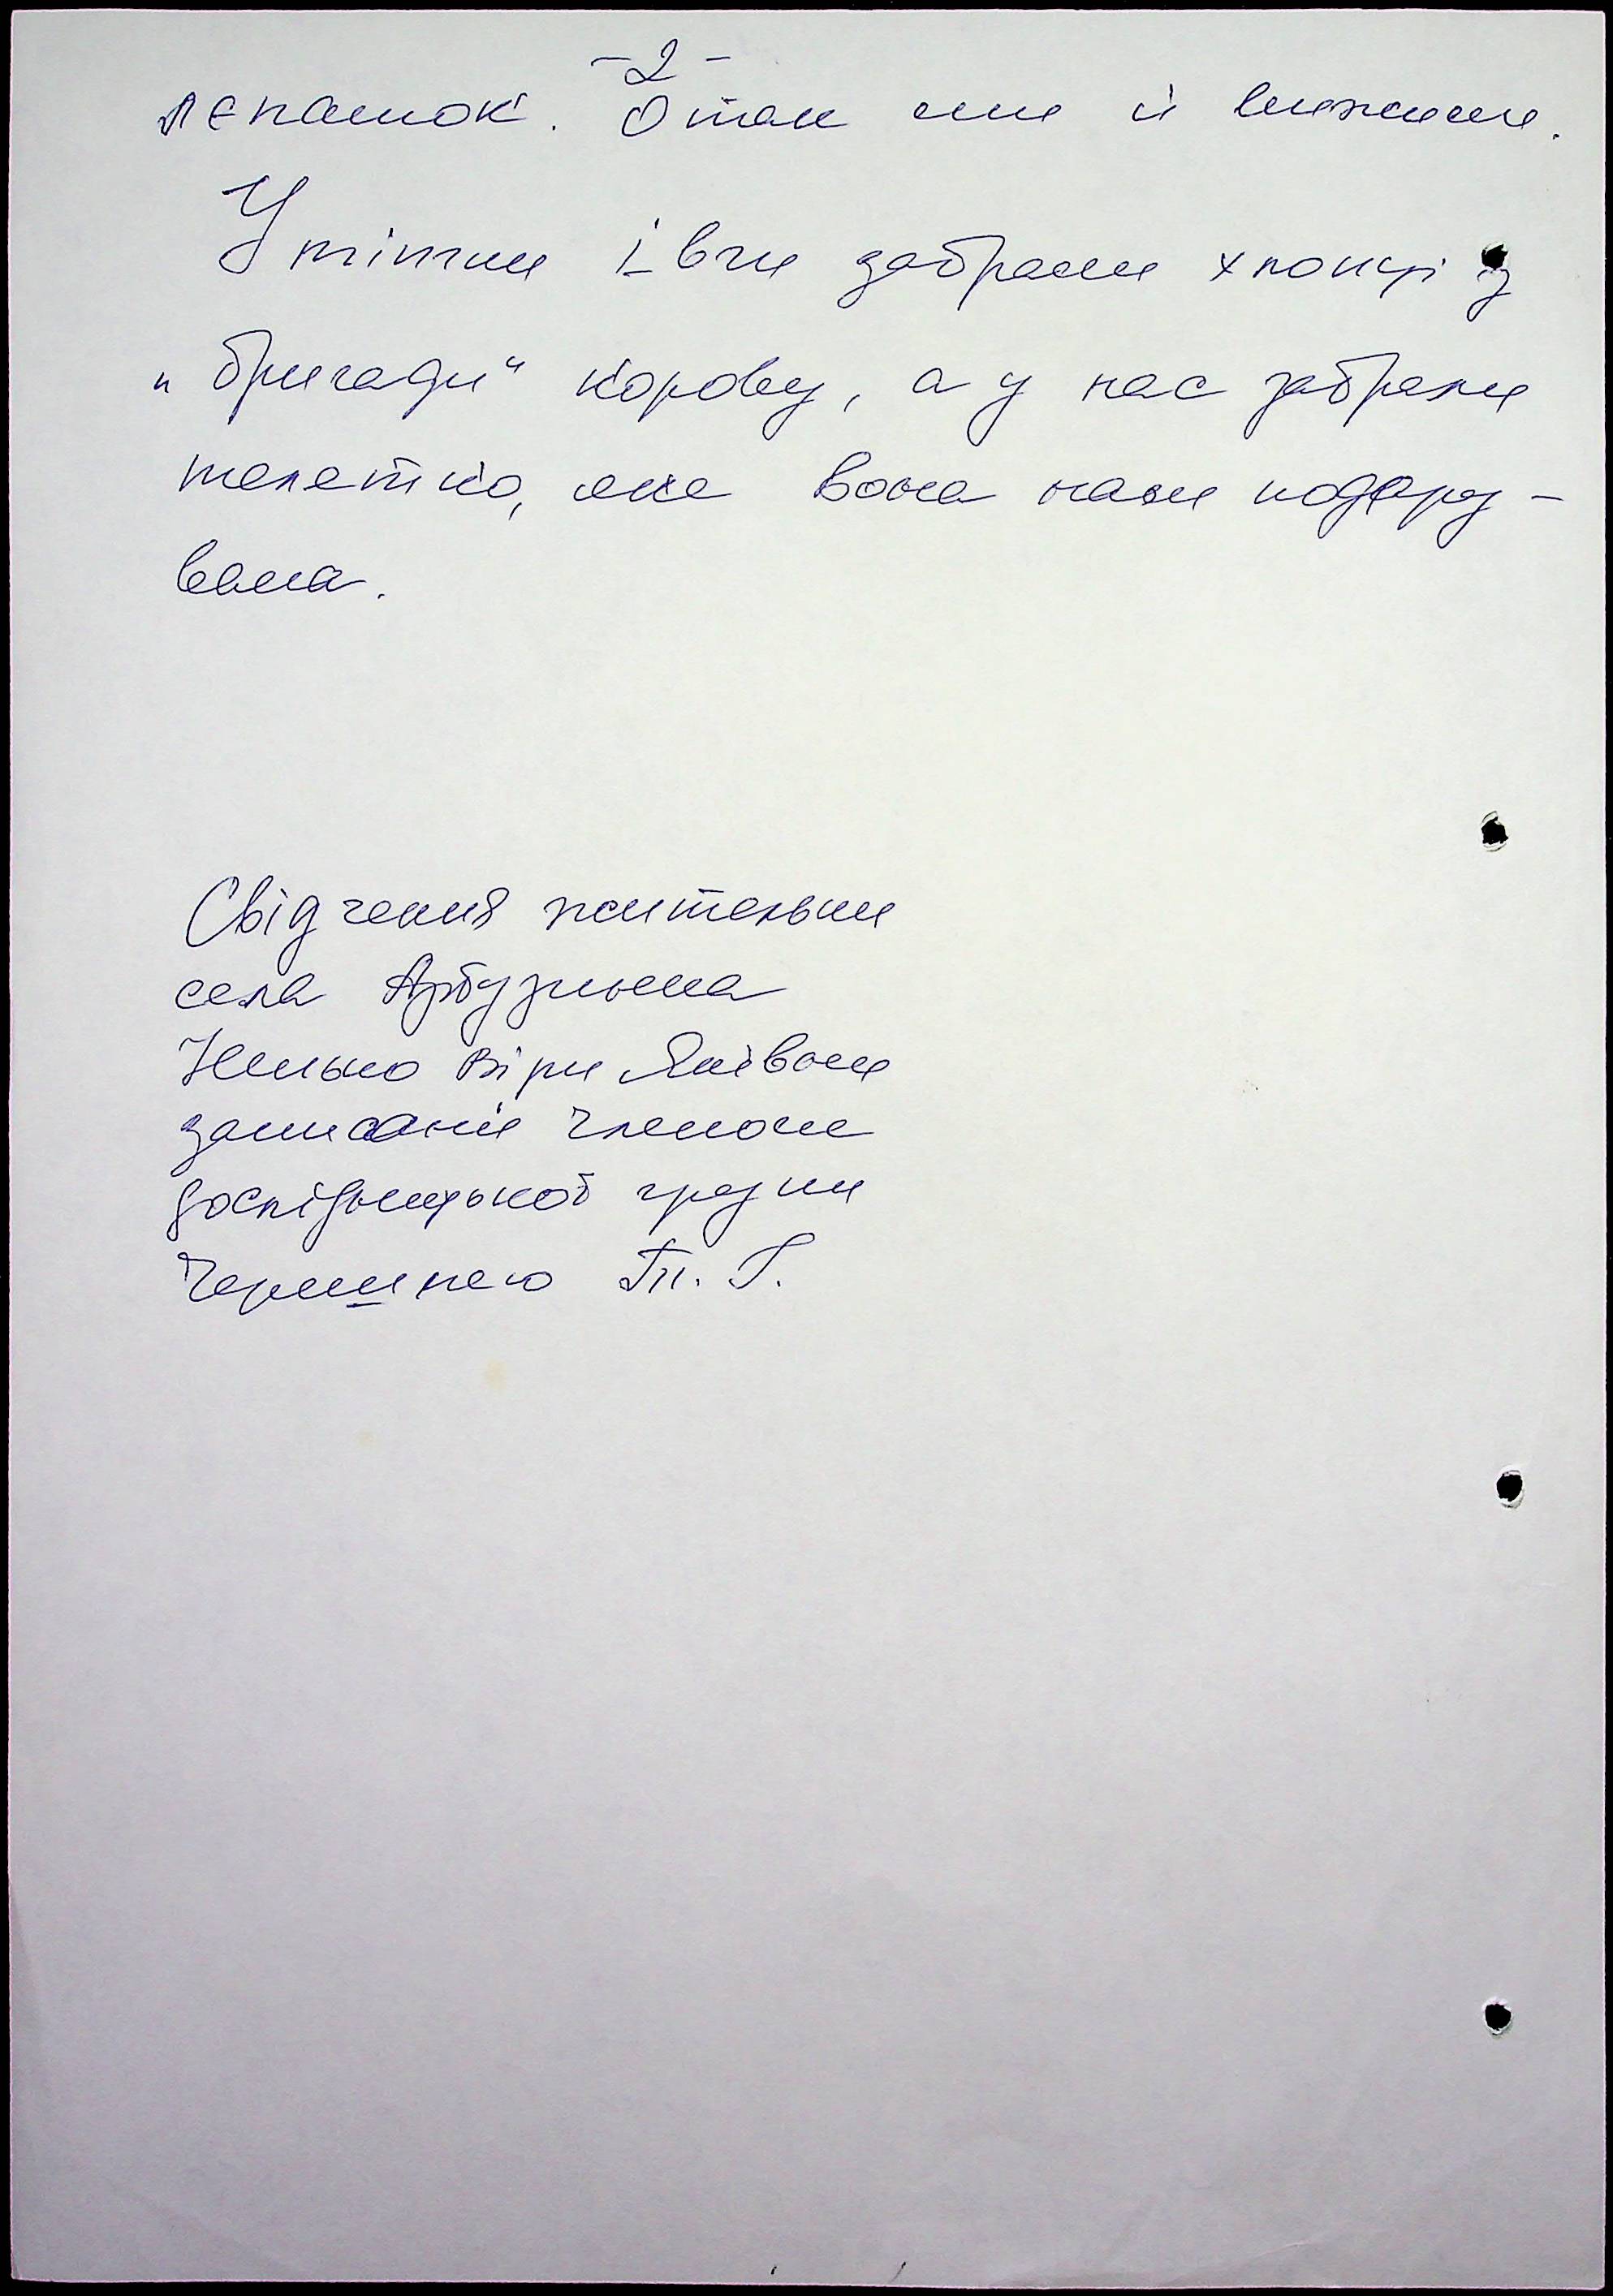 - 2 -
лєпашок. Отак ми й вижили.
У тітки Івги забрали хлопці з
„бригади“ корову, а у нас забрали
телятко, яке вона нам подару-
вала.
Свідчення жительки
села Арбузинка
Віри Яківни
записані членом
дослідницької групи
Черешнею Г.